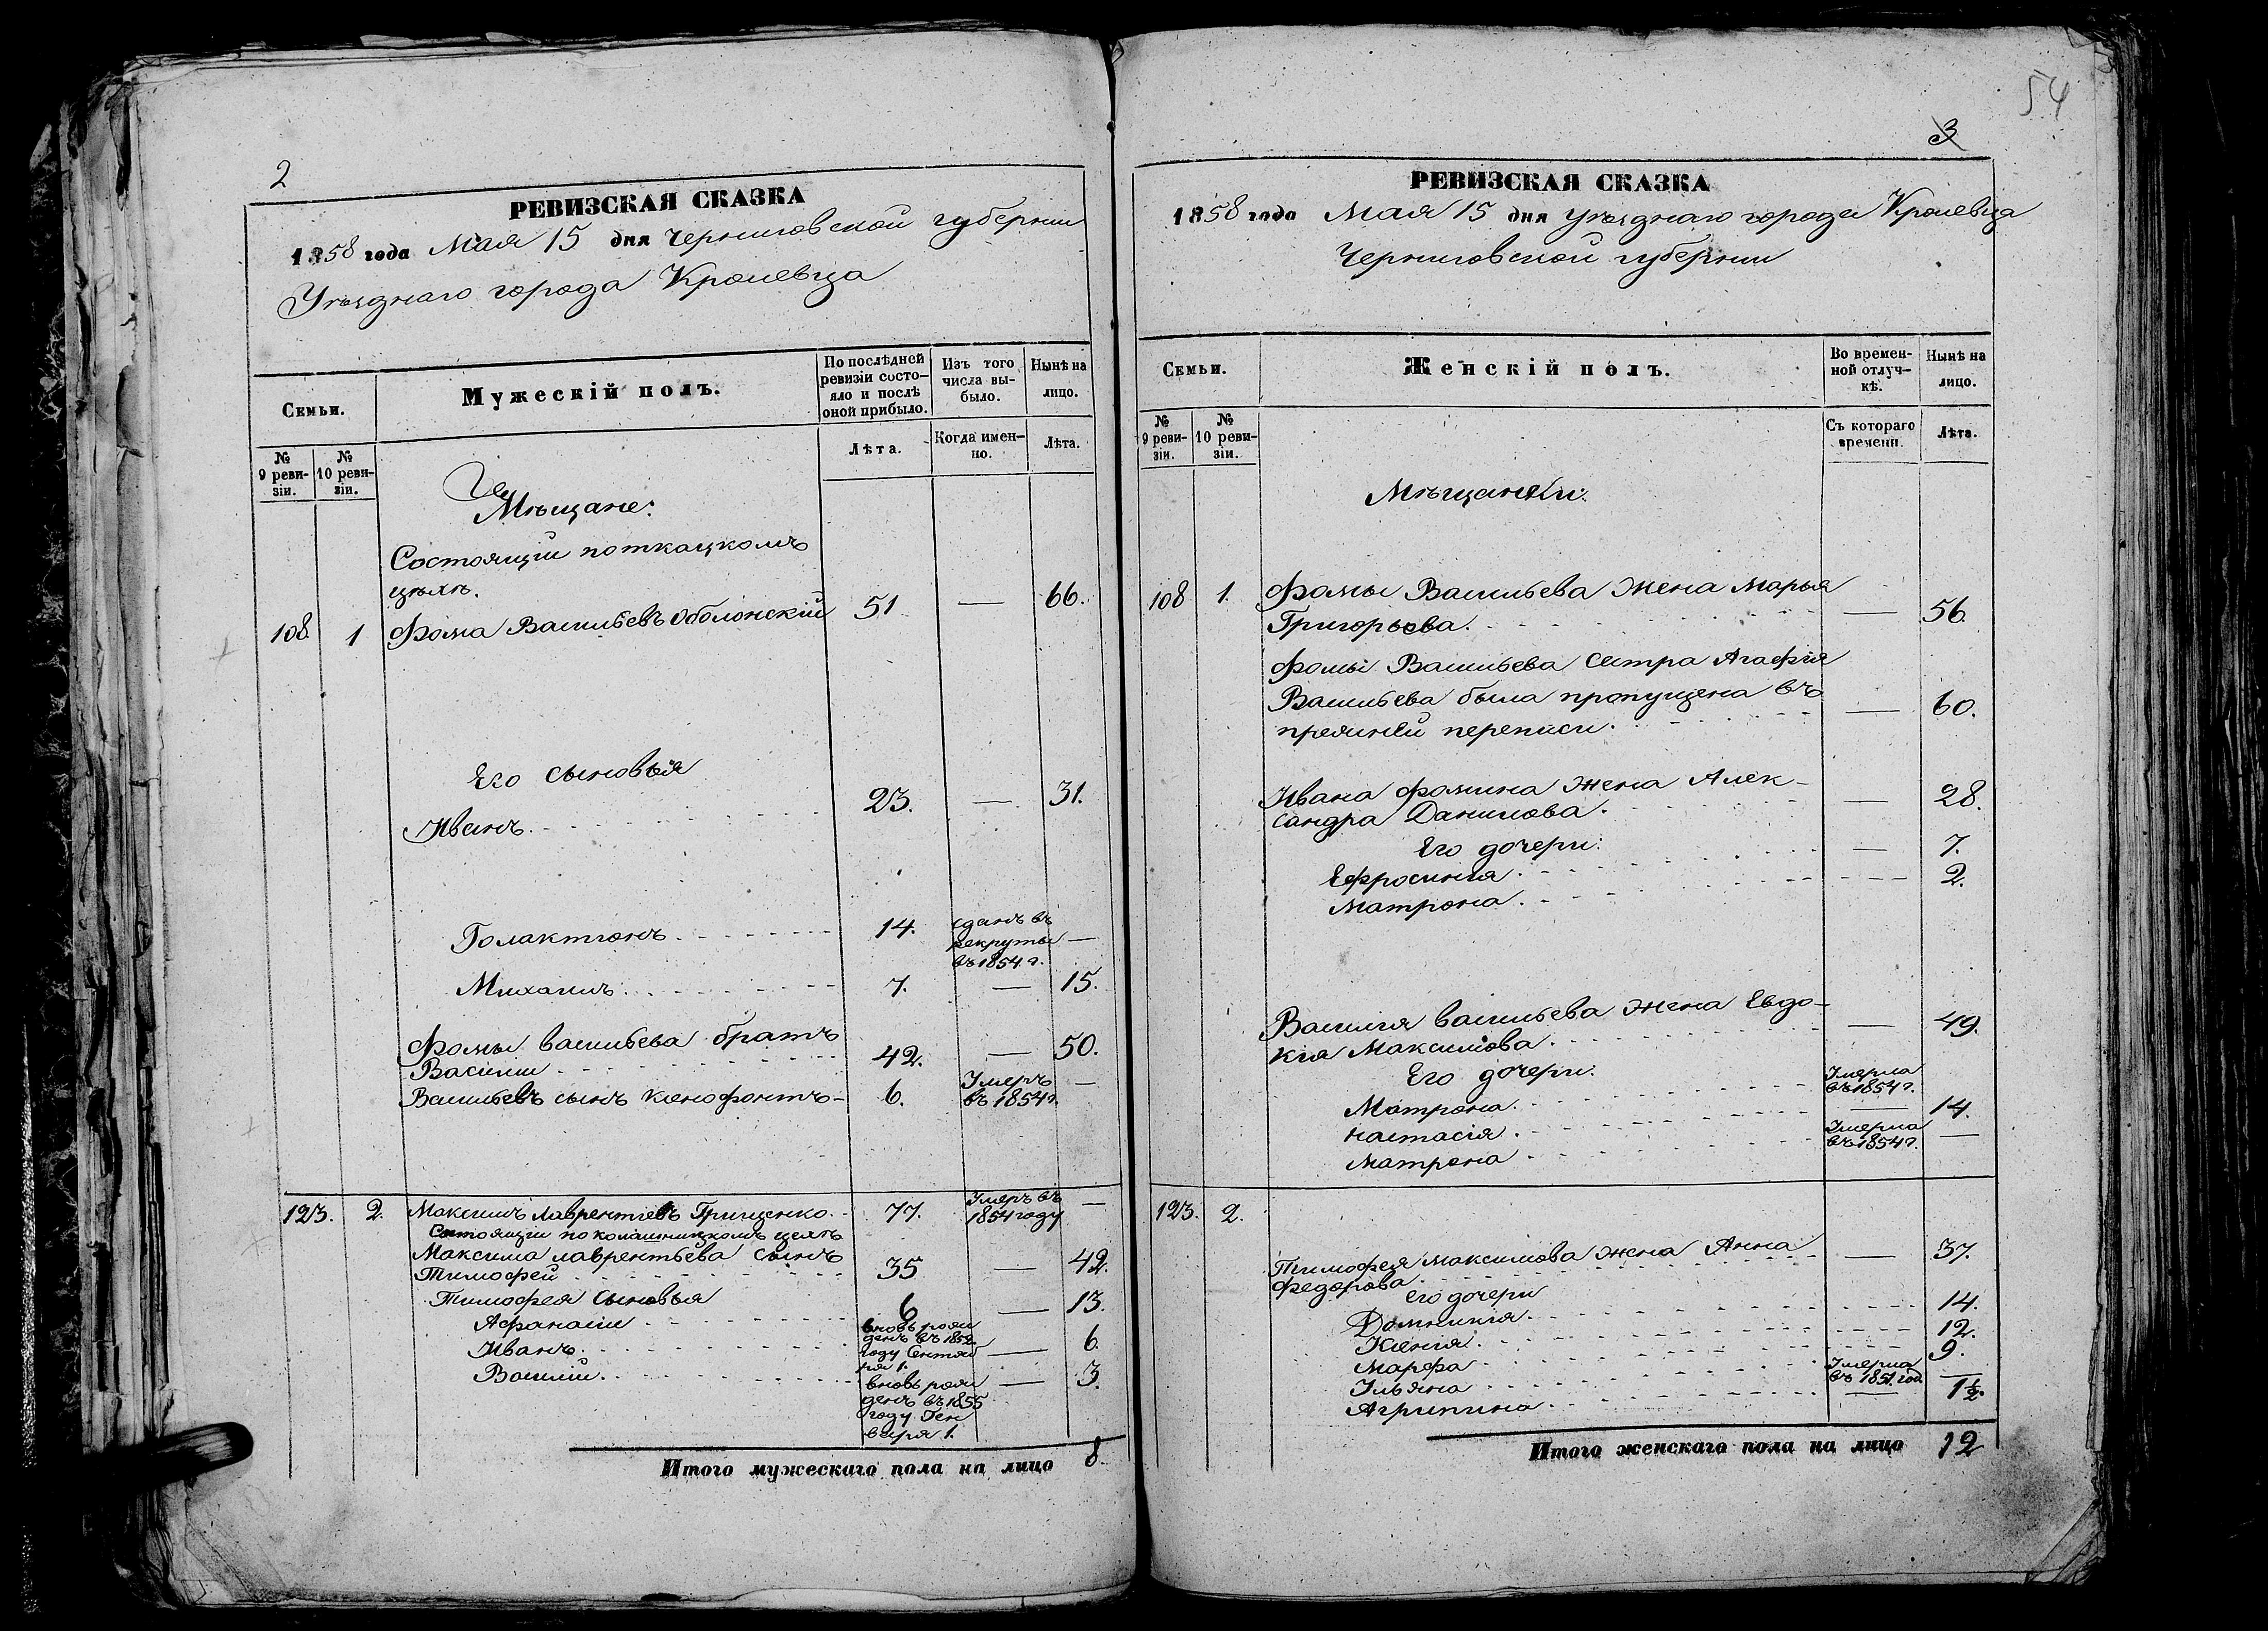 2
РЕВИЗСКАЯ СКАЗКА
1858 года Мая 15 дня Черниговской губернии
Уѣзднаго города Кролевца
Семьи.
Мужескій полъ.
По послѣдней ревизіи состо-
яло и послѣ оной прибыло.
Изъ того числа вы-
было.
Нынѣ на лицо.
№ 9 реви-
зіи.
№ 10 реви-
зіи.
Лѣта.
Когда имен-
но.
Лѣта.
Мѣщане:
Состоящіи по ткацкомъ
цѣхѣ.
108 1 Фома Васильевъ Оболонскій 51 — 66.
Его сыновья
Иванъ. 23. — 31.
Голактіонъ. 14. сданъ въ рекруты въ 1854 г. —
Михаилъ. 7. — 15.
Фомы Васильева братъ
Василии 42. — 50.
Васильевъ сынъ Ксенофонтъ 6. Умеръ въ 1854 г. —
123. 2. Максимъ Лаврентіевъ Грищенко. 77. Умеръ въ 1854 году —
Состоящіи по колашницкомъ цехѣ
Максима Лаврентьева сынъ
Тимофей 35 — 42.
Тимофея сыновья
Афанасіи 6 — 13.
Иванъ. вновь рожденъ въ 1852 году Сентяб ря 1. — 6.
Василій. вновь рожденъ въ 1855 году Генваря 1. — 3.
Итого мужескаго пола на лицо 8
54
3
РЕВИЗСКАЯ СКАЗКА
1858 года Мая 15 дня Уѣзднаго города Кролевца
Черниговской губернии
Семьи.
Женскій полъ.
Во времен-
ной отлуч-
кѣ.
Нынѣ на лицо.
№ 9 реви-
зіи.
№ 10 реви-
зіи.
Съ котораго времени.
Лѣта.
Мѣщанки:
108 1. Фомы Васильева жена Марья
Григорьева. — 56
Фомы Васильева сестра Агафія
Васильева была пропущена въ
прежней переписи. — 60.
Ивана Фомина жена Алек-
сандра Данилова. — 28.
Его дочери:
Ефросинія — 7.
Матрона — 2.
Василия Васильева жена Евдо-
кія Максимова. — 49.
Его дочери:
Матрона. Умерла въ 1854 г.
Настасія. — 14.
Матрона Умерла въ 1854 г. —
123. 2.
Тимофея Максимова жена Анна
Федорова — 37.
Его дочери
Домникия. 14.
Ксения. 12.
Марфа 9.
Ульяна Умерла въ 1851. год. —
Агрипина — 1½.
Итого женскаго пола на лицо 12